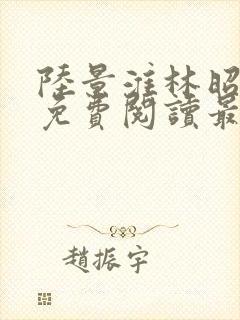 陸景淮林昭
免費閱讀最
趙振宇